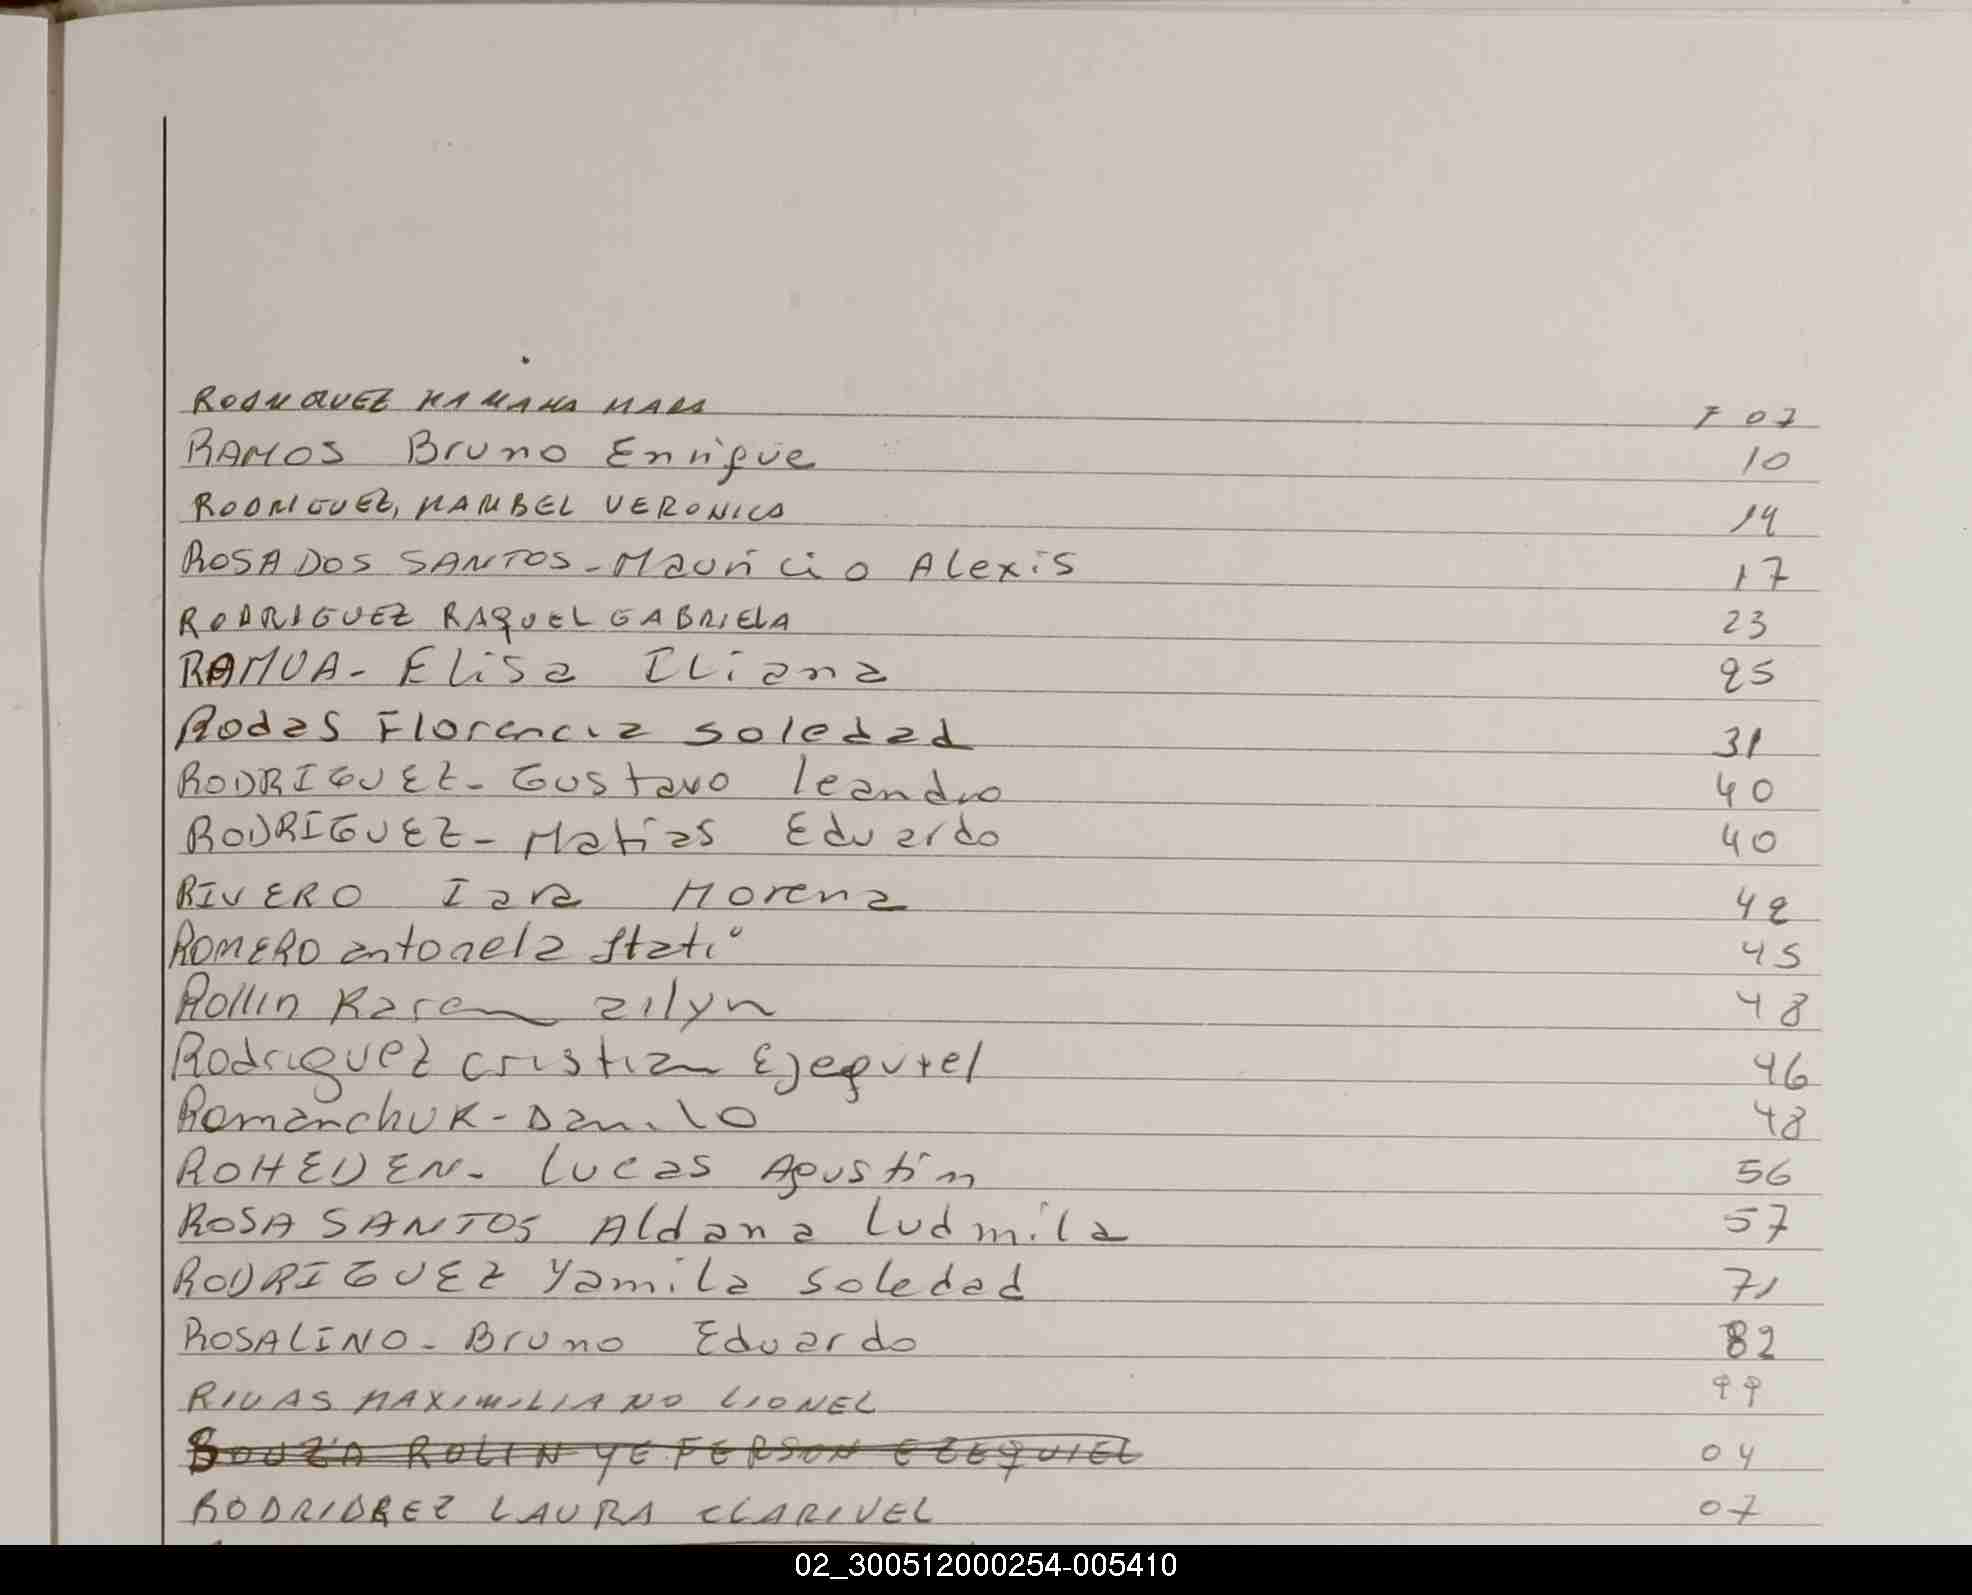 RODRIQUEZ MAMANA MARA F 07
RAMOS Bruno Enrique 10
RODRIGUEZ, MARIBEL VERONICA 14
ROSA DOS SANTOS - Mauricio Alexis 17
RODRIGUEZ RAQUEL GABRIELA 23
RAMUA - Elisa Iliana 25
Rodas Florencia Soledad 31
RODRIGUEZ - Gustavo leandro 40
RODRIGUEZ - Matias Eduardo 40
RIVERO Iara Morena 42
ROMERO antonela 45
Rollin Karen zilyn 48
Rodriguez cristian Ejequiel 46
Romanchuk - Danilo 48
ROHEDEN - Lucas Agustin 56
ROSA SANTOS Aldana Ludmila 57
RODRIGUEZ Yamila Soledad 71
ROSALINO - Bruno Eduardo 82
RIVAS MAXIMILIANO LIONEL 99
SOUZA ROLIN YEFERSON EZEQUIEL 04
LAURA CLARIVEL 07
02_300512000254-005410